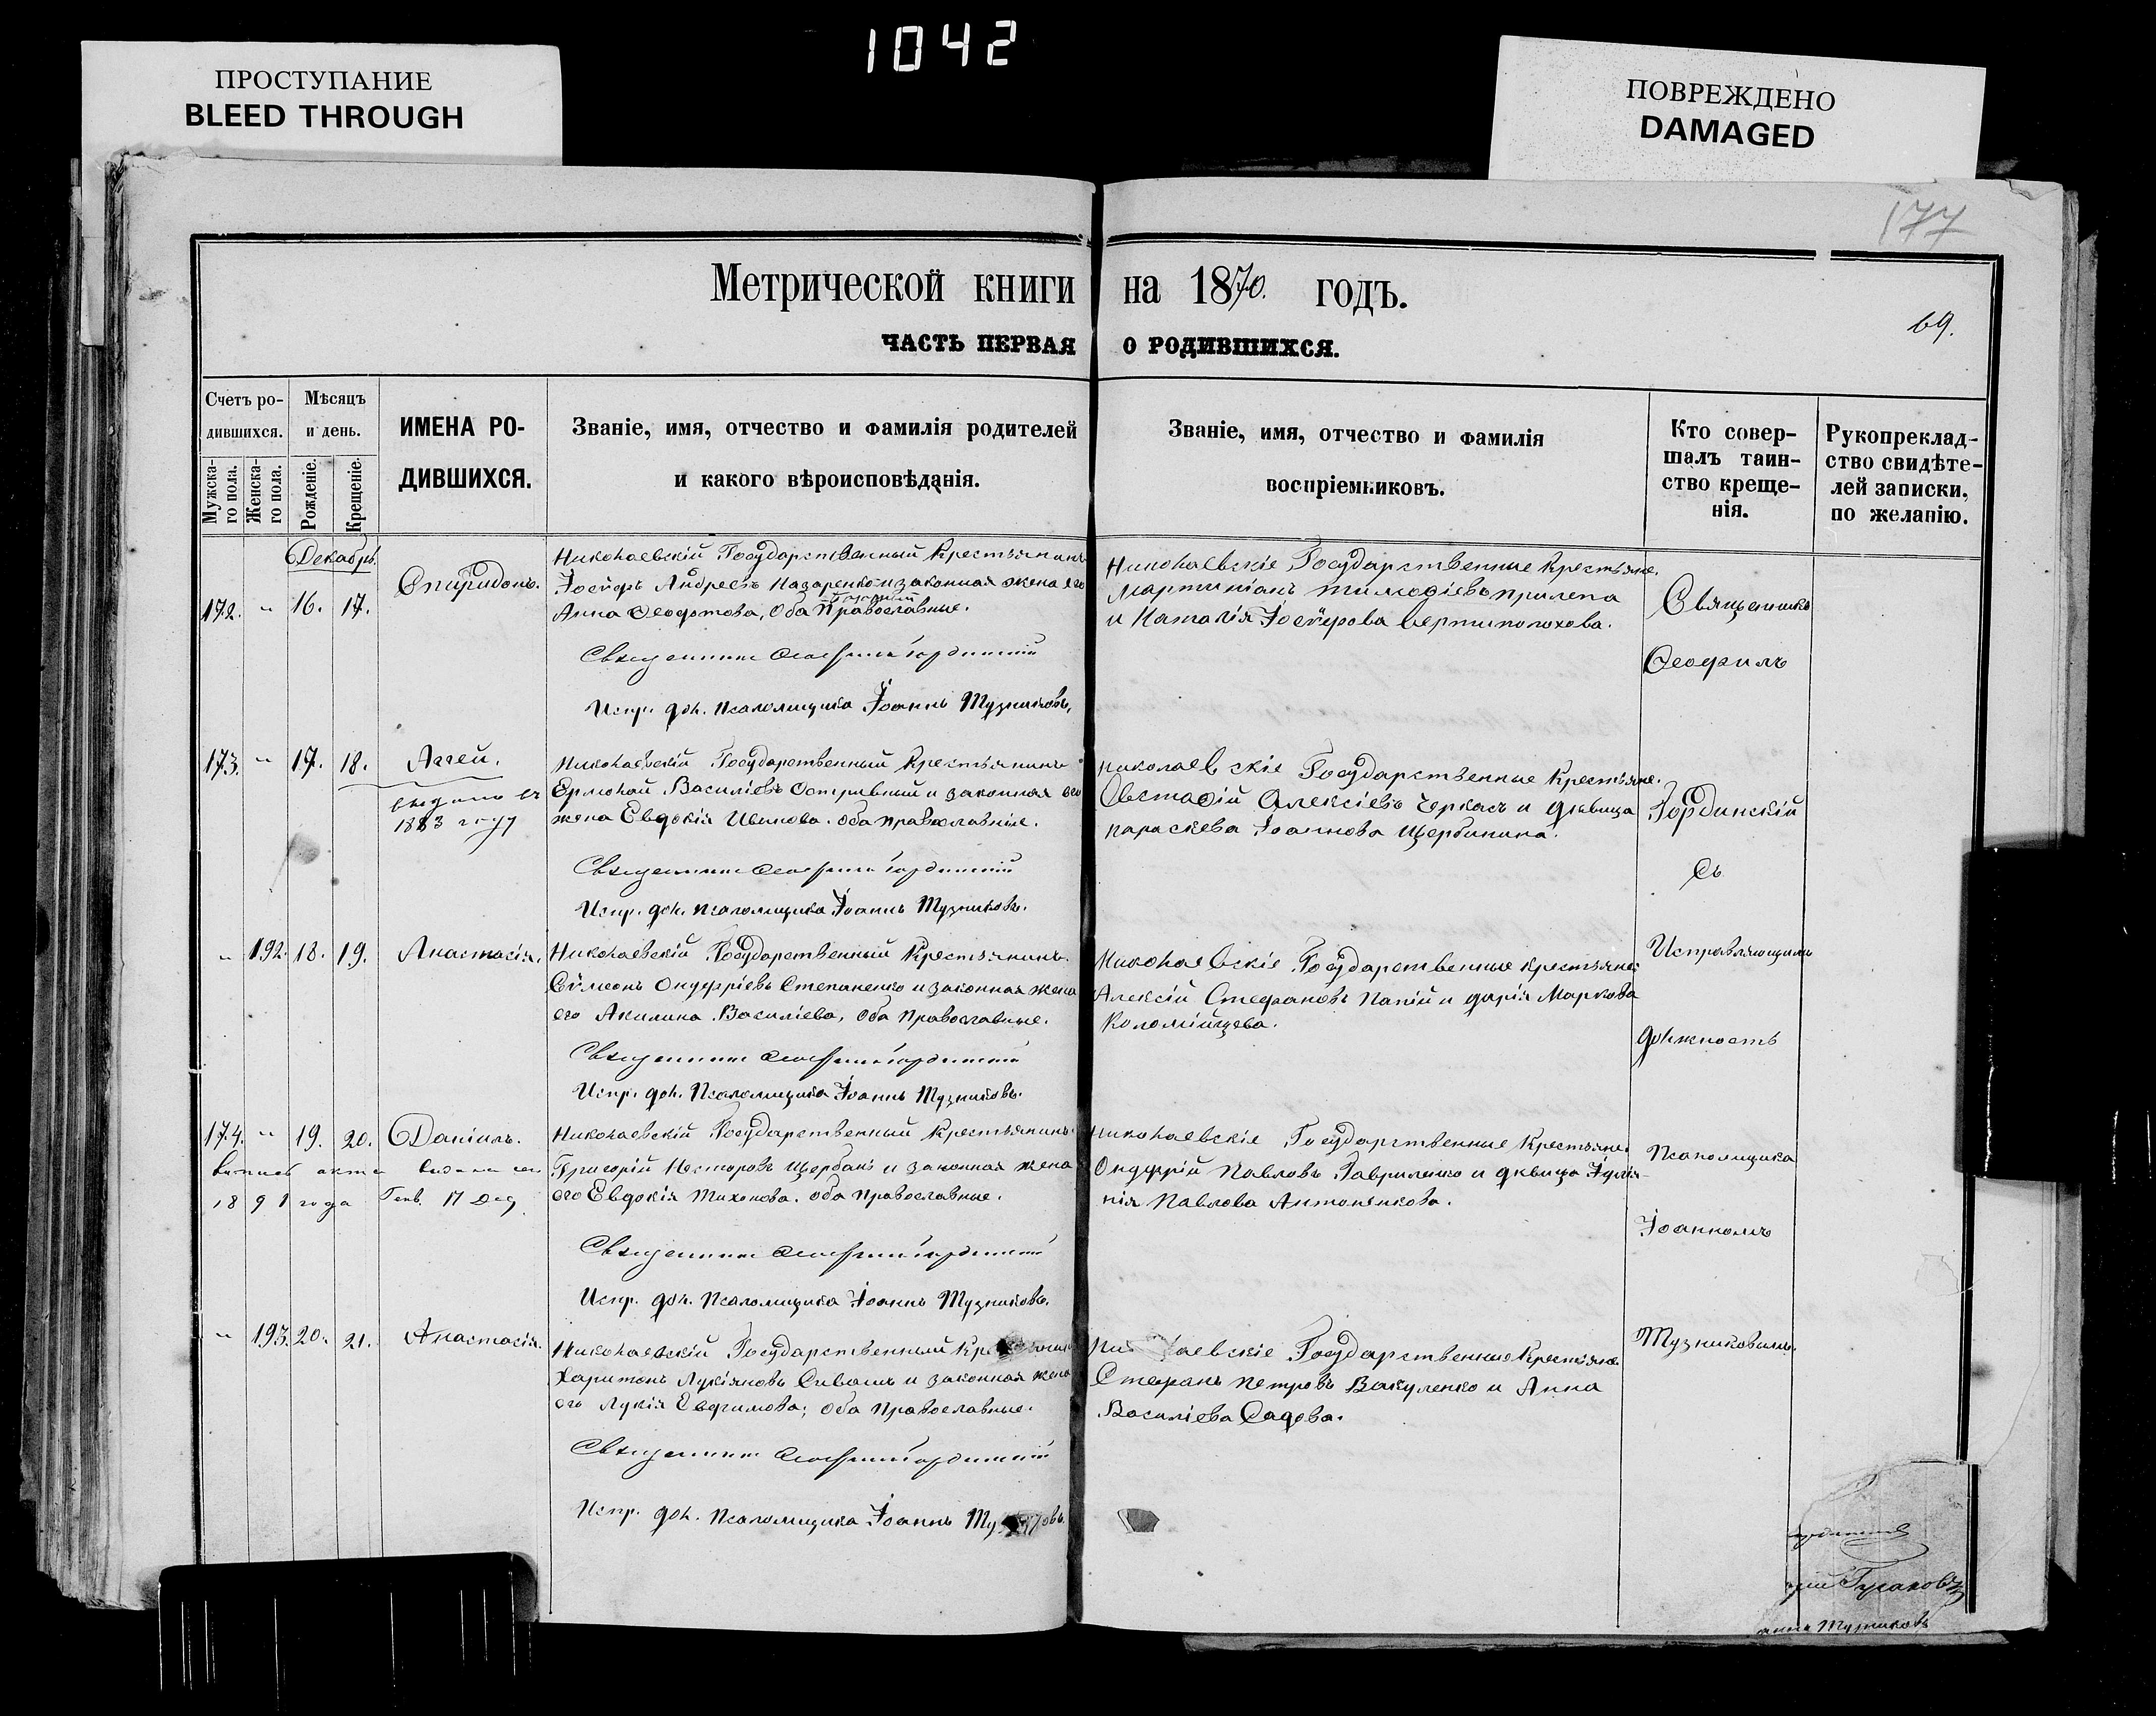 1042
ПРОСТУПАНИЕ
BLEED THROUGH
ПОВРЕЖДЕНО
DAMAGED
177
Метрической книги на 1870. годъ.
69.
ЧАСТЬ ПЕРВАЯ О РОДИВШИХСЯ.
Счетъ ро-
дившихся.
Мужска-
го пола.
Женска-
го пола.
Мѣсяцъ
и день.
Рожденіе.
Крещеніе.
ИМЕНА РО-
ДИВШИХСЯ.
Званіе, имя, отчество и фамилія родителей
и какого вѣроисповѣданія.
Званіе, имя, отчество и фамилія
воспріемниковъ.
Кто совер-
шалъ таин-
ство креще-
нія.
Рукоприклад-
ство свидѣте-
лей записки,
по желанію.
Декабрь.
172. " 16. 17.
Спиридонъ.
Николаевскій Государственный Крестьянинъ
Іосифъ Андреевъ Назаренко и законная жена его
Анна Ѳеодотова, оба Православные.
Священникъ Ѳеофилъ Гординскій
Испр. дол. Псаломщика Іоаннъ Музниковъ.
Николаевскіе Государственные Крестьяне.
Мартиніанъ Тимоѳіевъ Прилепа
и Наталія Іосифова Вертиполохова.
173. " 17. 18.
Аггей.
1883 году
Николаевскій Государственный Крестьянинъ
Ермолай Василіевъ Остривный и законная его
жена Евдокія Иванова. оба православные.
Священникъ Ѳеофилъ Гординскій
Испр. дол. псаломщика Іоаннъ Музниковъ.
Николаевскіе Государственные Крестьяне.
Евстафій Алексіевъ Черкасъ и дѣвица
параскева Іоаннова Щербинина.
" 192. 18. 19.
Анастасія.
Николаевскій Государственный Крестьянинъ.
Сѵмеонъ Онуфріевъ Степаненко и законная жена
его Акилина Василіева, оба Православные.
Священникъ Ѳеофилъ Гординскій
Испр. дол. Псаломщика Іоаннъ Музниковъ.
Николаевскіе Государственные крестьяне:
Алексій Стефановъ Папій и дарія Маркова
Коломійцева.
174. " 19. 20.
Даніилъ.
1891 года Генв. 17
Николаевскій Государственный Крестьянинъ.
Григорій Несторовъ Щербакъ и законная жена
его Евдокія Тихонова. оба православные.
Священникъ Ѳеофилъ Гординскій
Испр. дол. Псаломщика Іоаннъ Музниковъ.
Николаевскіе Государственные Крестьяне.
Онуфрій Павловъ Гавриленко и дѣвица Іулiа-
нія Павлова Антоненкова.
" 193. 20. 21.
Анастасія.
Николаевскій Государственный
Харитонъ Лукіяновъ Сивашъ и законная жена
его Лукія Евфимова; оба православные.
Священникъ Ѳеофилъ Гординскій
Испр. дол. Псаломщика Іоаннъ
Государственные Крестьяне.
Стефанъ Петровъ Вакуленко и Анна
Василіева Садова.
Священникъ
Ѳеофилъ
Гординскій
Съ
Исправляющимъ
должность
Псаломщика
Іоанномъ
Музниковымъ.
Гусаковъ
Музниковъ